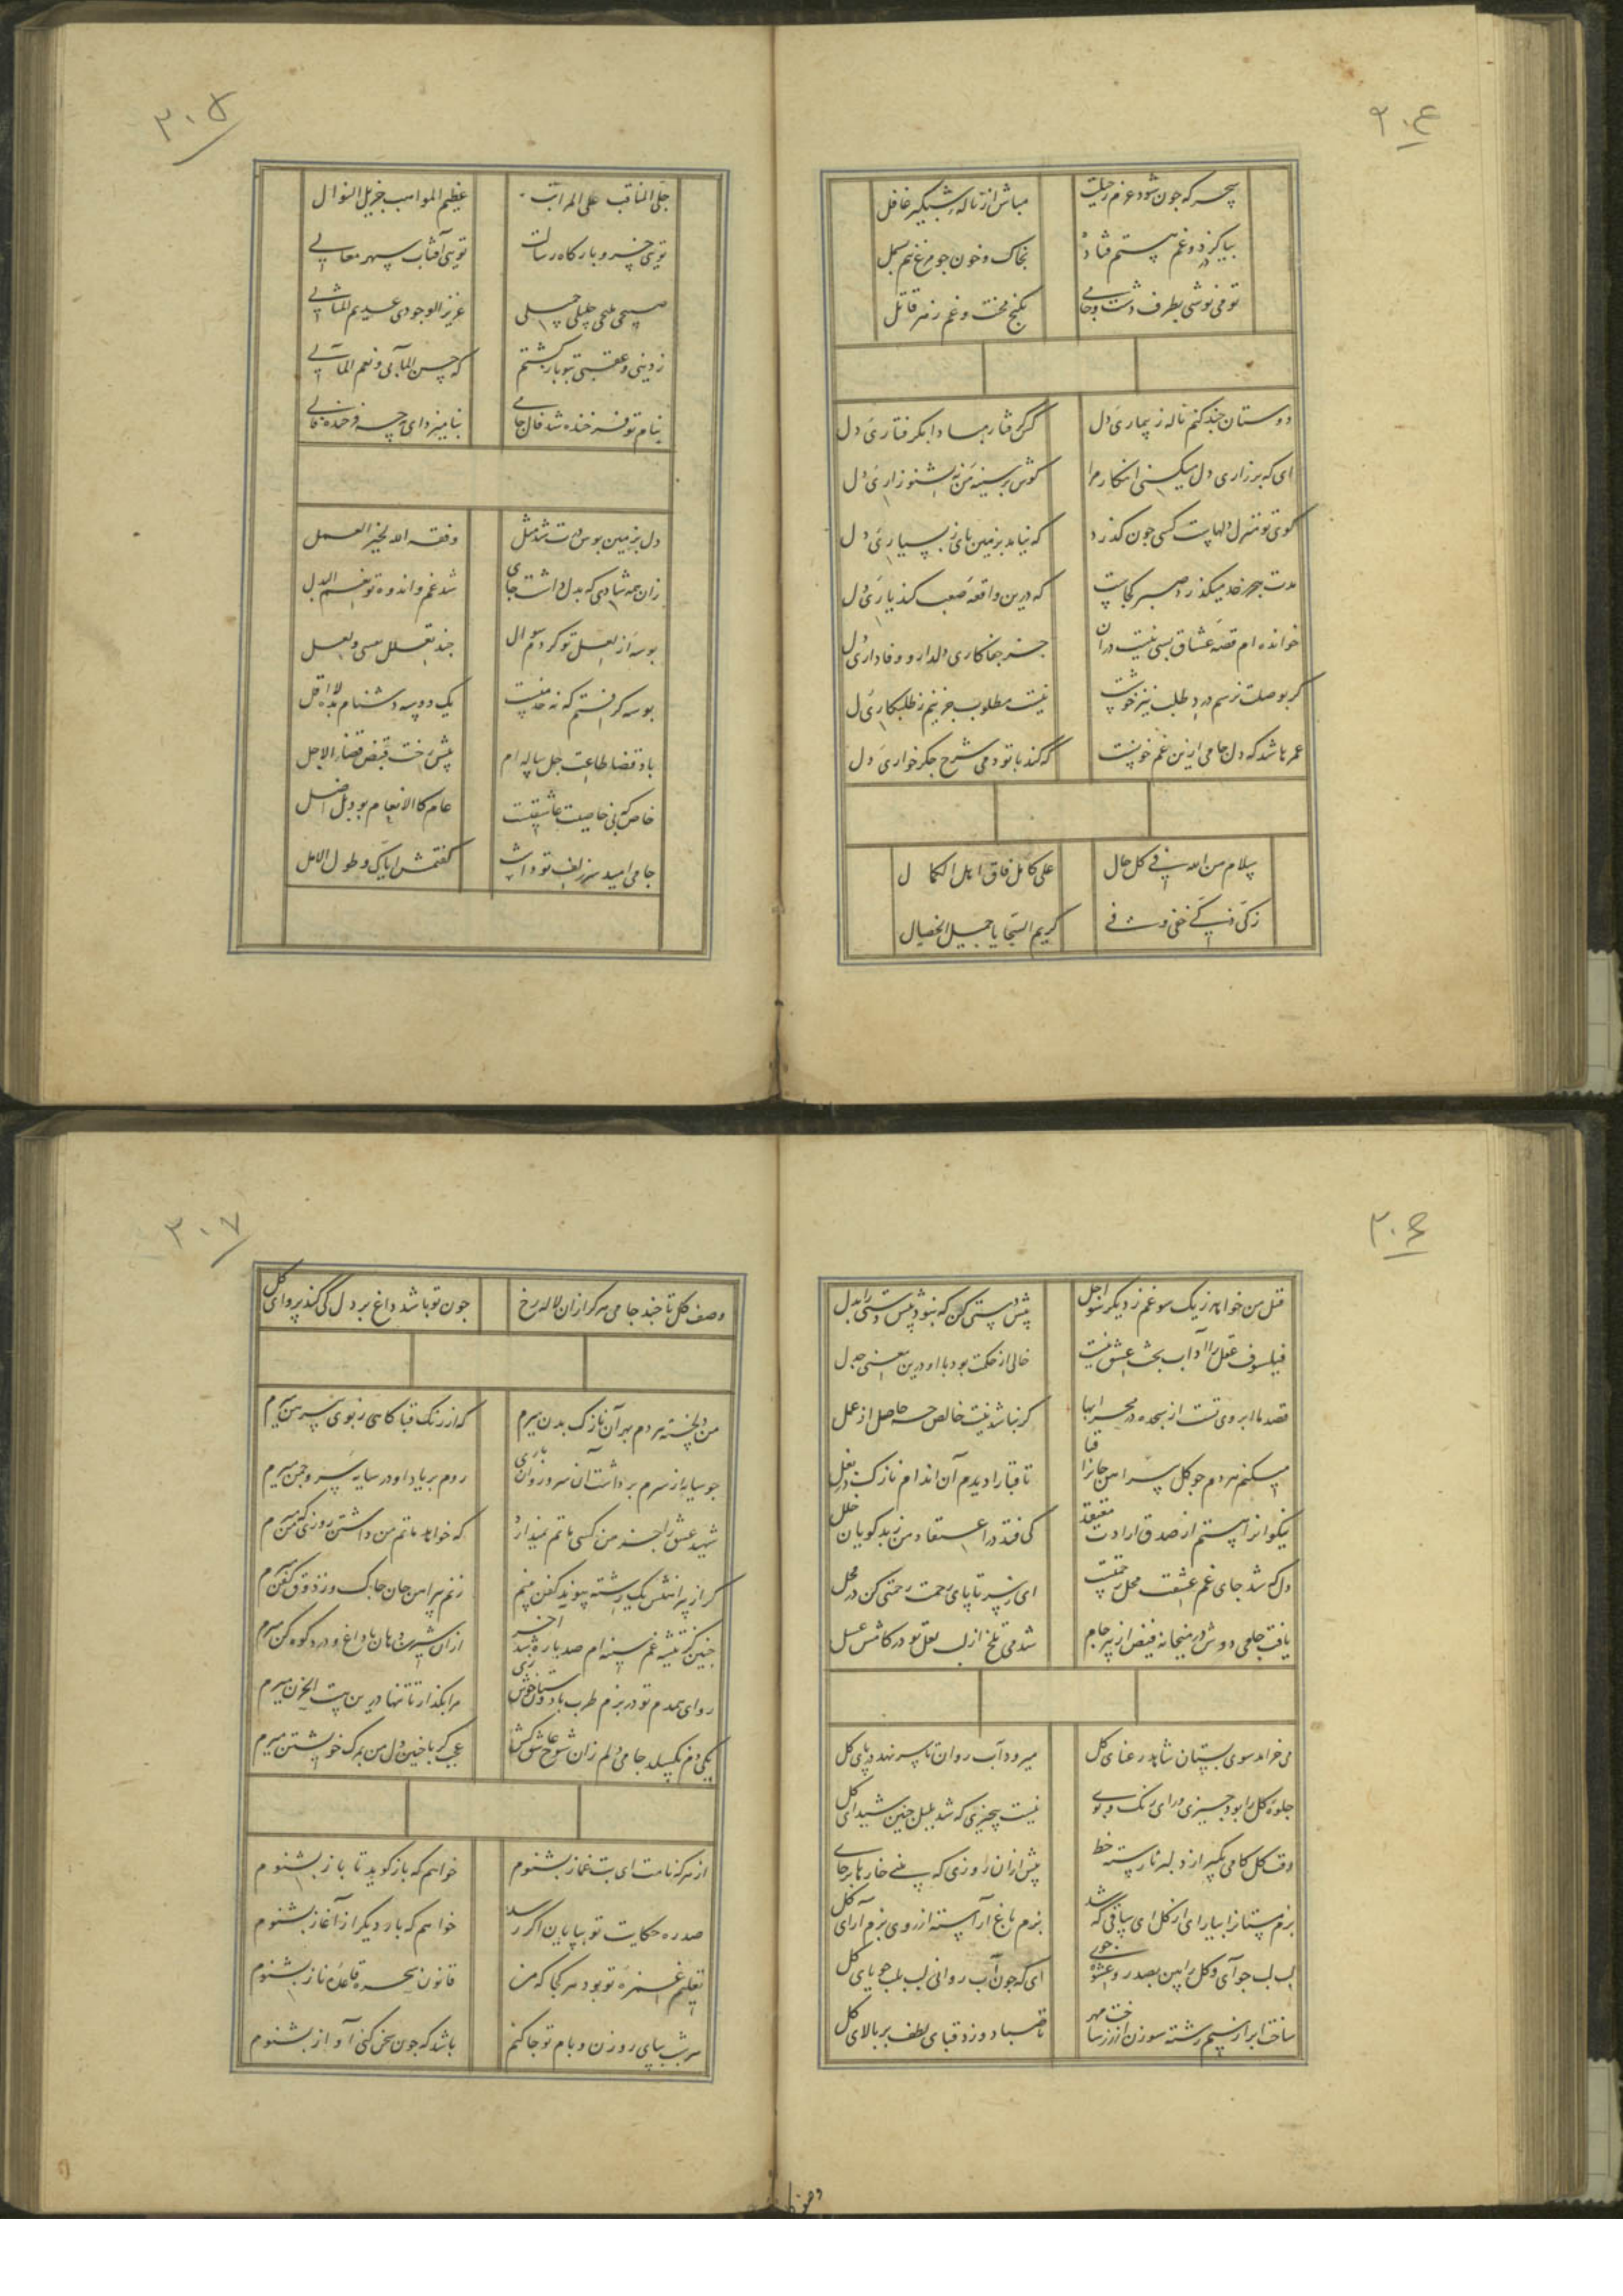 ۳۰۴
سحر که جون شود عزم رحیلت
مباش از ناله شبگیر غافل
بیا کز درد و غم هستم فتاده
بخاک و خون جو مرغ نیم بسمل
تو می نوشی بطرف دشت و جامی
بکنج محنت و غم زهر قاتل
دوستان جند کنم ناله ز بیماری دل
کس گرفتار مبادا بگرفتاری دل
ای که بر زاری دل میکنی انکار مرا
گوش بر سینه من نه بشنو زاری دل
کوی تو منزل دلهاست کسی جون گذرد
که نیاید بزمین پای ز بسیاری دل
مدت هجر خدا میگذرد صبر کجاست
که درین واقعه صعب کند یاری دل
خوانده ام قصه عشاق بسی نیست در آن
جز جفاکاری دلدار و وفاداری دل
گر بوصلت نرسم درد طلب نیز خوشست
نیست مطلوب جزینم ز طلبکاری دل
عمرها شد که دل جامی ازین غم خونست
که کند با تو دمی شرح جگرخواری دل
سلام من الله فی کل حال
علی کامل فاق اهل الکمال
کریم السجایا جمیل الخصال
۳۰۵
جلی المناقب علی المراتب
عظیم المواهب جزیل النوال
تویی خسرو بارگاه رسالت
تویی آفتاب سپهر معالی
عزیز الوجودی عدیم المثالی
ز دینی و عقبی بتو بازگشتم
که حسن المآبی و نعم المآلی
بنام تو فرخنده شد فال جامی
بنامیزد ای جه فرخنده فالی
دل بزمین بوس درت شد مثل
وفقه الله لخیر العمل
زان همه شادی که بدل داشت جای
شد غم و اندوه تو نعم البدل
بوسه از لعل تو کردم سوال
جند تعلل بعسی و لعل
بوسه گرفتم که نه حد منست
یک دو سه دشنام بده لا اقل
باد قضا طاعت جل ساله ام
پیش رخت قبض قضا را لاجل
خاص که بی خاصیت عاشقیست
عام کالانعام بود بل اضل
جامی امید سر زلف تو داشت
گفتمش ایاک و طول الامل
۳۰۶
قتل من خواهد ز یک سو غم ز دیگر سو اجل
پیش دستی کن که نبود پیش دستی را بدل
فیلسوف عقل را آداب بحث عشق نیست
خالی از حکمت بود با او درین معنی جدل
قصد ما ابروی تست از سجده در محرابها
گر نباشد نیت خالص جه حاصل از عمل
میکنم هردم جو گل پیراهن جانرا قبا
تا قبا را دیدم آن اندام نازک در بغل
نیکوانرا هستم از صدق ارادت معتقد
کی فتد در اعتقاد من ز بدگویان خلل
دل که شد جای غم عشقت محل رحمتست
ای ز سر تا پای رحمت رحمتی کن در محل
یافت جامی دوش در میخانه فیض از پیر جام
شد می تلخ از لب لعل تو در کامش عسل
می خرامد سوی بستان شاهد رعنای گل
میرود آب روان تا سر نهد در پای گل
جلوه گل را بود جیزی ورای رنگ و بوی
نیست بیجیزی که شد بلبل جنین شیدای گل
وقت گل کامی بگیر از دلبر نارسته خط
پیش از آن روزی که بینی خارها بر جای گل
بزم مستانرا بیارای از گل ای ساقی که شد
بزم باغ آراسته از روی بزم آرای گل
لب لب جو آی و گل را بین بصدر عشوه جوی
ای که جون آب روانی لب بلب جویای گل
ساخت ابر از سیم رشته سوزن از زر ساخت مهر
تا صبا دوزد قبای لطف بر بالای گل
۳۰۷
وصف گل تا جند جامی هرکرا زان لاله رخ
جون تو باشد داغ بر دل کی کند پروای گل
من دلخسته هردم بهر آن نازک بدن میرم
که از رنگ قبا کاهی ز بوی پیرهن میرم
جو سایه از سرم برداشت آن سرو روان باری
روم بر یاد او در سایه سرو و جمن میرم
شهید عشق را جز من کسی ماتم نمیدارد
که خواهد ماتم من داشتن روزی که من میرم
گر از پیراهنش یک رشته پیوند کفن بینم
زنم پیراهن جان جاک و ز ذوق کفن میرم
جنین کز تیشه غم سینه ام صد پاره شد آخر
از آن شیرین دهان با داغ و درد کوه کن میرم
رو ای همدم تو در بزم طرب با دوستان خوش زی
مرا بگذار تا تنها درین بیت الحزن میرم
یکی دم نگسلد جامی دلم زان شوخ عاشق کش
عجب گر با جنین دل من بمرگ خویشتن میرم
از هرکه نامت ای بت طناز بشنوم
خواهم که باز گوید تا باز بشنوم
صد ره حکایت تو بپایان اگر رسد
خواهم که بار دیگر از آغاز بشنوم
تعلیم غمزه تو بود هر کجا که من
قانون سحر و قاعده ناز بشنوم
هر شب بپای روزن و بام تو جا کنم
باشد که جون سخن کنی آواز بشنوم